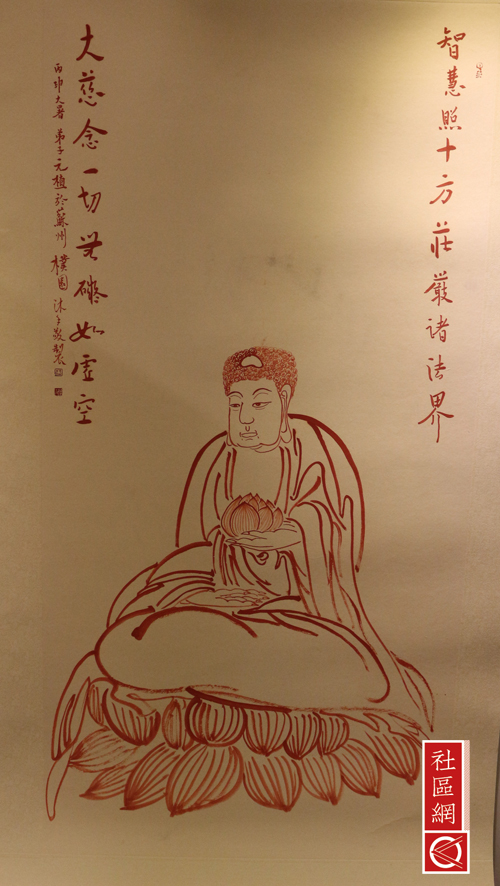 智慧照十方莊嚴諸法界
大慈念一切無礙如虛空
丙申大暑 弟子元植於蘇州樸園沐手敬製
社區網